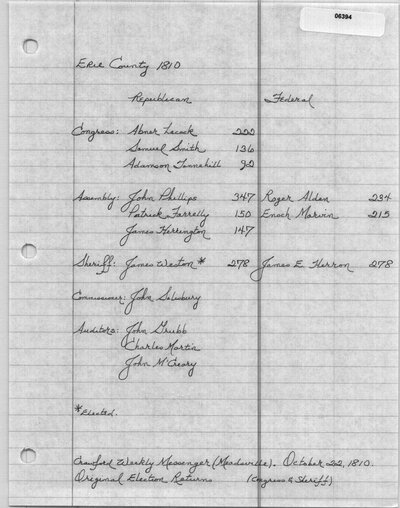 06394
Erie County 1810
Republican Federal
Congress: Abner Lacock 222
Samuel Smith 136
Adamson Tannehill 92
Assembly: John Phillips 347 Roger Alden 234
Patrick Farrelly 150 Enoch Marvin 215
James Herrington 147
Sheriff: James Weston* 278 James E. Herron 278
Commissioner: John Salsbury
Auditors: John Grubb
Charles Martin
John McCreary
*Elected.
Crawford Weekly Messenger (Meadville). October 22, 1810.
Original Election Returns (Congress & Sheriff)